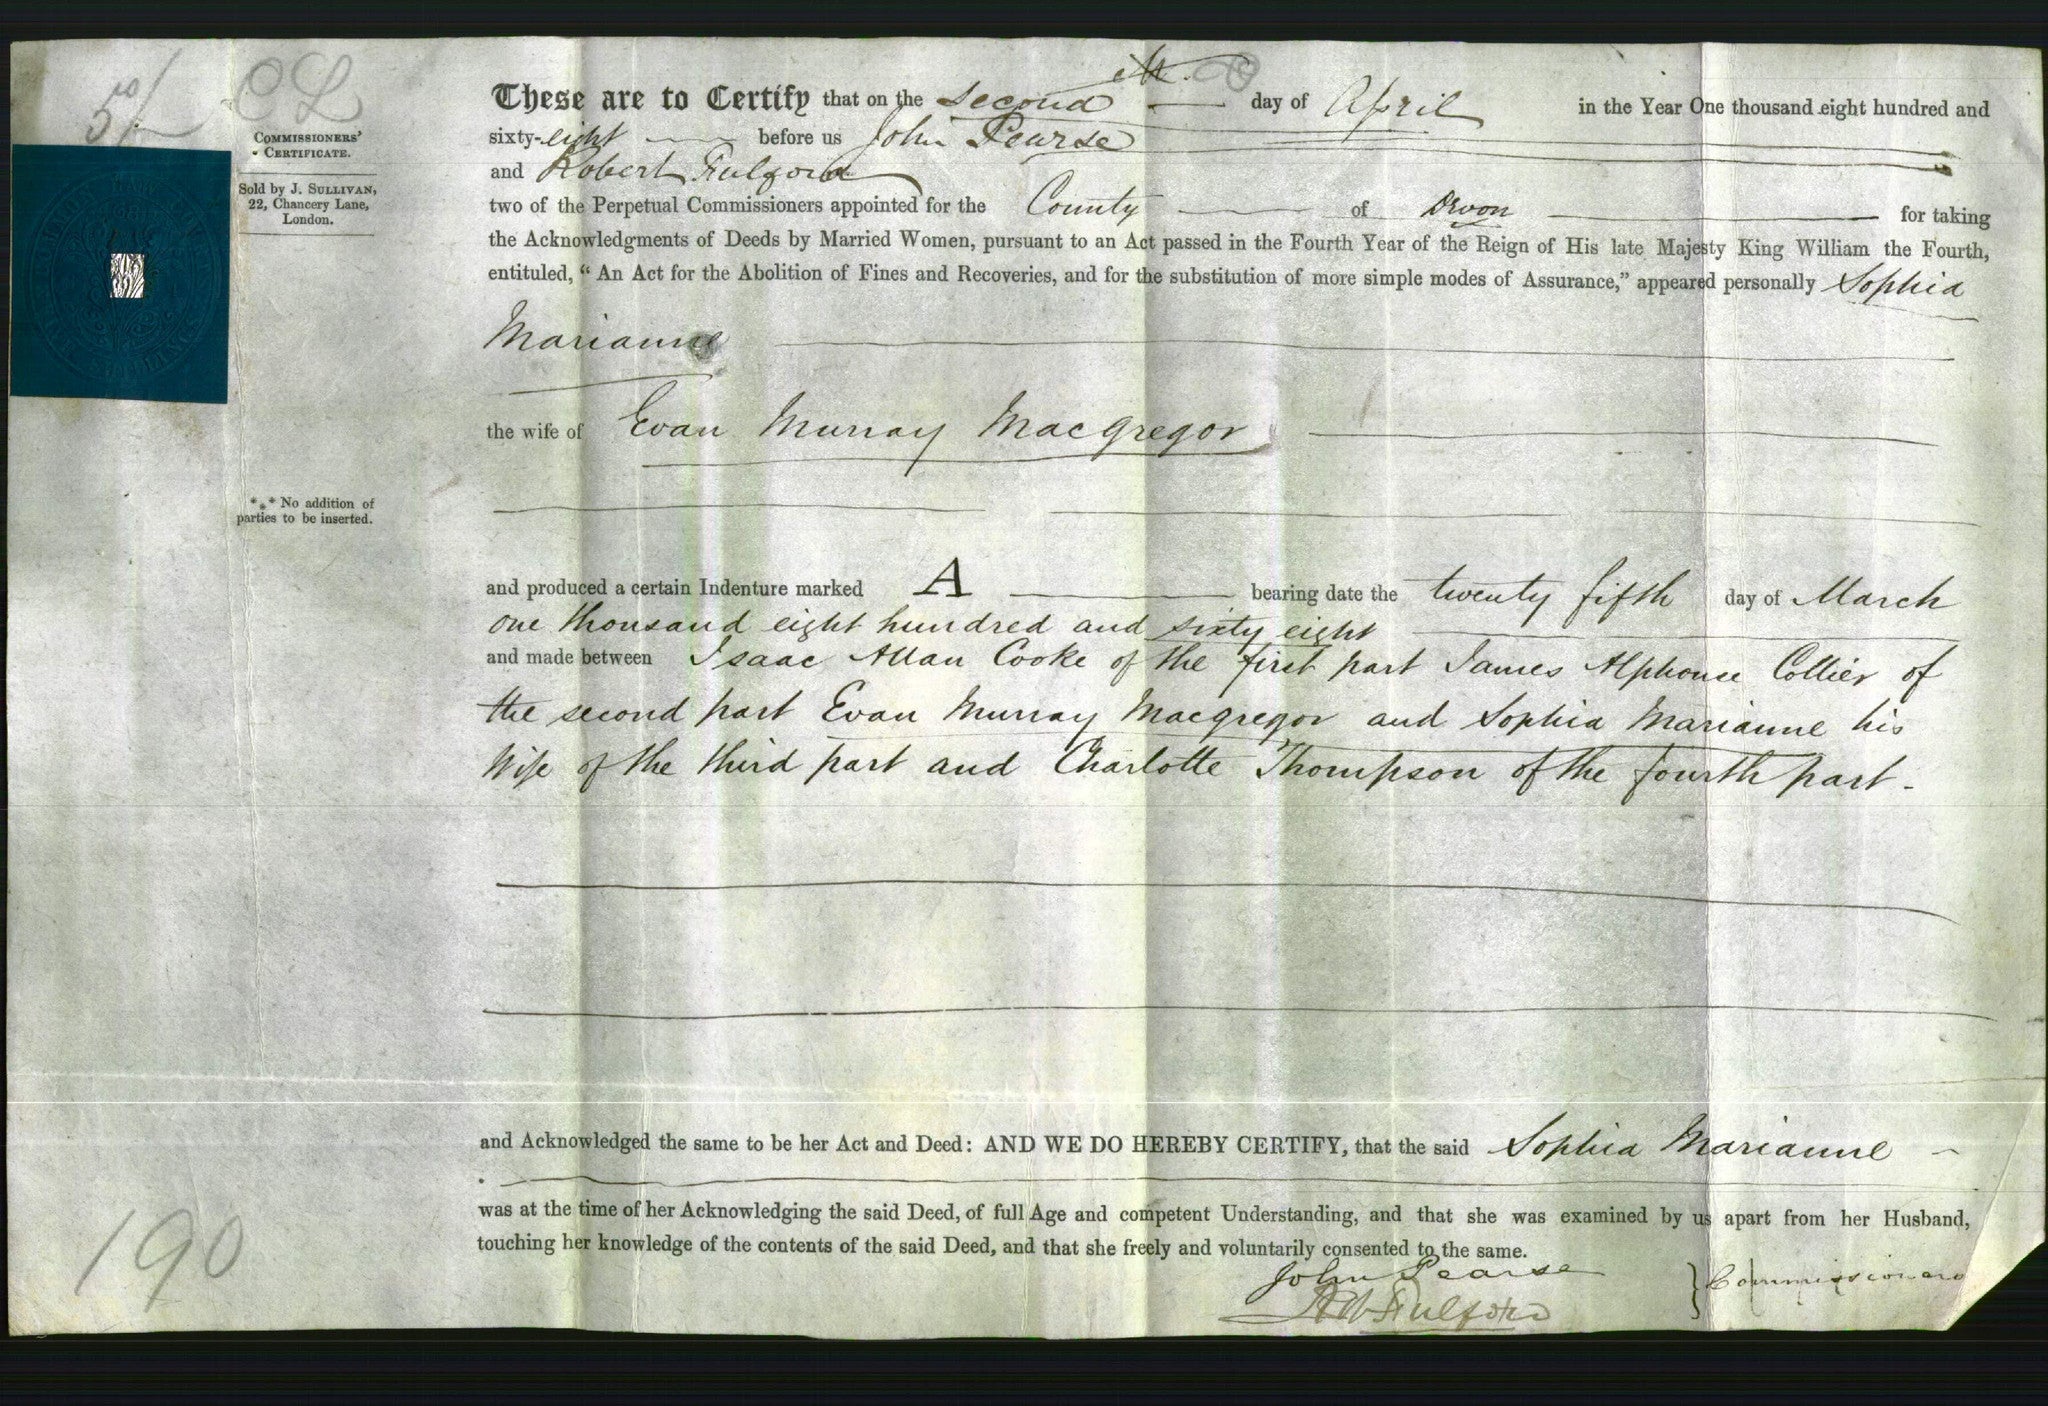 5/
CL
COMMISSIONERS'
CERTIFICATE.
Sold by J. SULLIVAN,
22, Chancery Lane,
London.
These are to Certify that on the second day of April in the Year One thousand eight hundred and
sixty-eight before us John Pearse
and Robert Fulford
two of the Perpetual Commissioners appointed for the County of Devon for taking
the Acknowledgments of Deeds by Married Women, pursuant to an Act passed in the Fourth Year of the Reign of His late Majesty King William the Fourth,
entituled, “An Act for the Abolition of Fines and Recoveries, and for the substitution of more simple modes of Assurance,” appeared personally Sophia
Marianne
the wife of Evan Murray Macgregor
*** No addition of
parties to be inserted.
and produced a certain Indenture marked A bearing date the twenty fifth day of March
one thousand eight hundred and sixty eight
and made between Isaac Allan Cooke of the first part James Alphonse Collier of
the second part Evan Murray Macgregor and Sophia Marianne his
Wife of the third part and Charlotte Thompson of the fourth part.
and Acknowledged the same to be her Act and Deed: AND WE DO HEREBY CERTIFY, that the said Sophia Marianne
was at the time of her Acknowledging the said Deed, of full Age and competent Understanding, and that she was examined by us apart from her Husband,
touching her knowledge of the contents of the said Deed, and that she freely and voluntarily consented to the same.
John Pearse
Fulford
} Commissioners
190